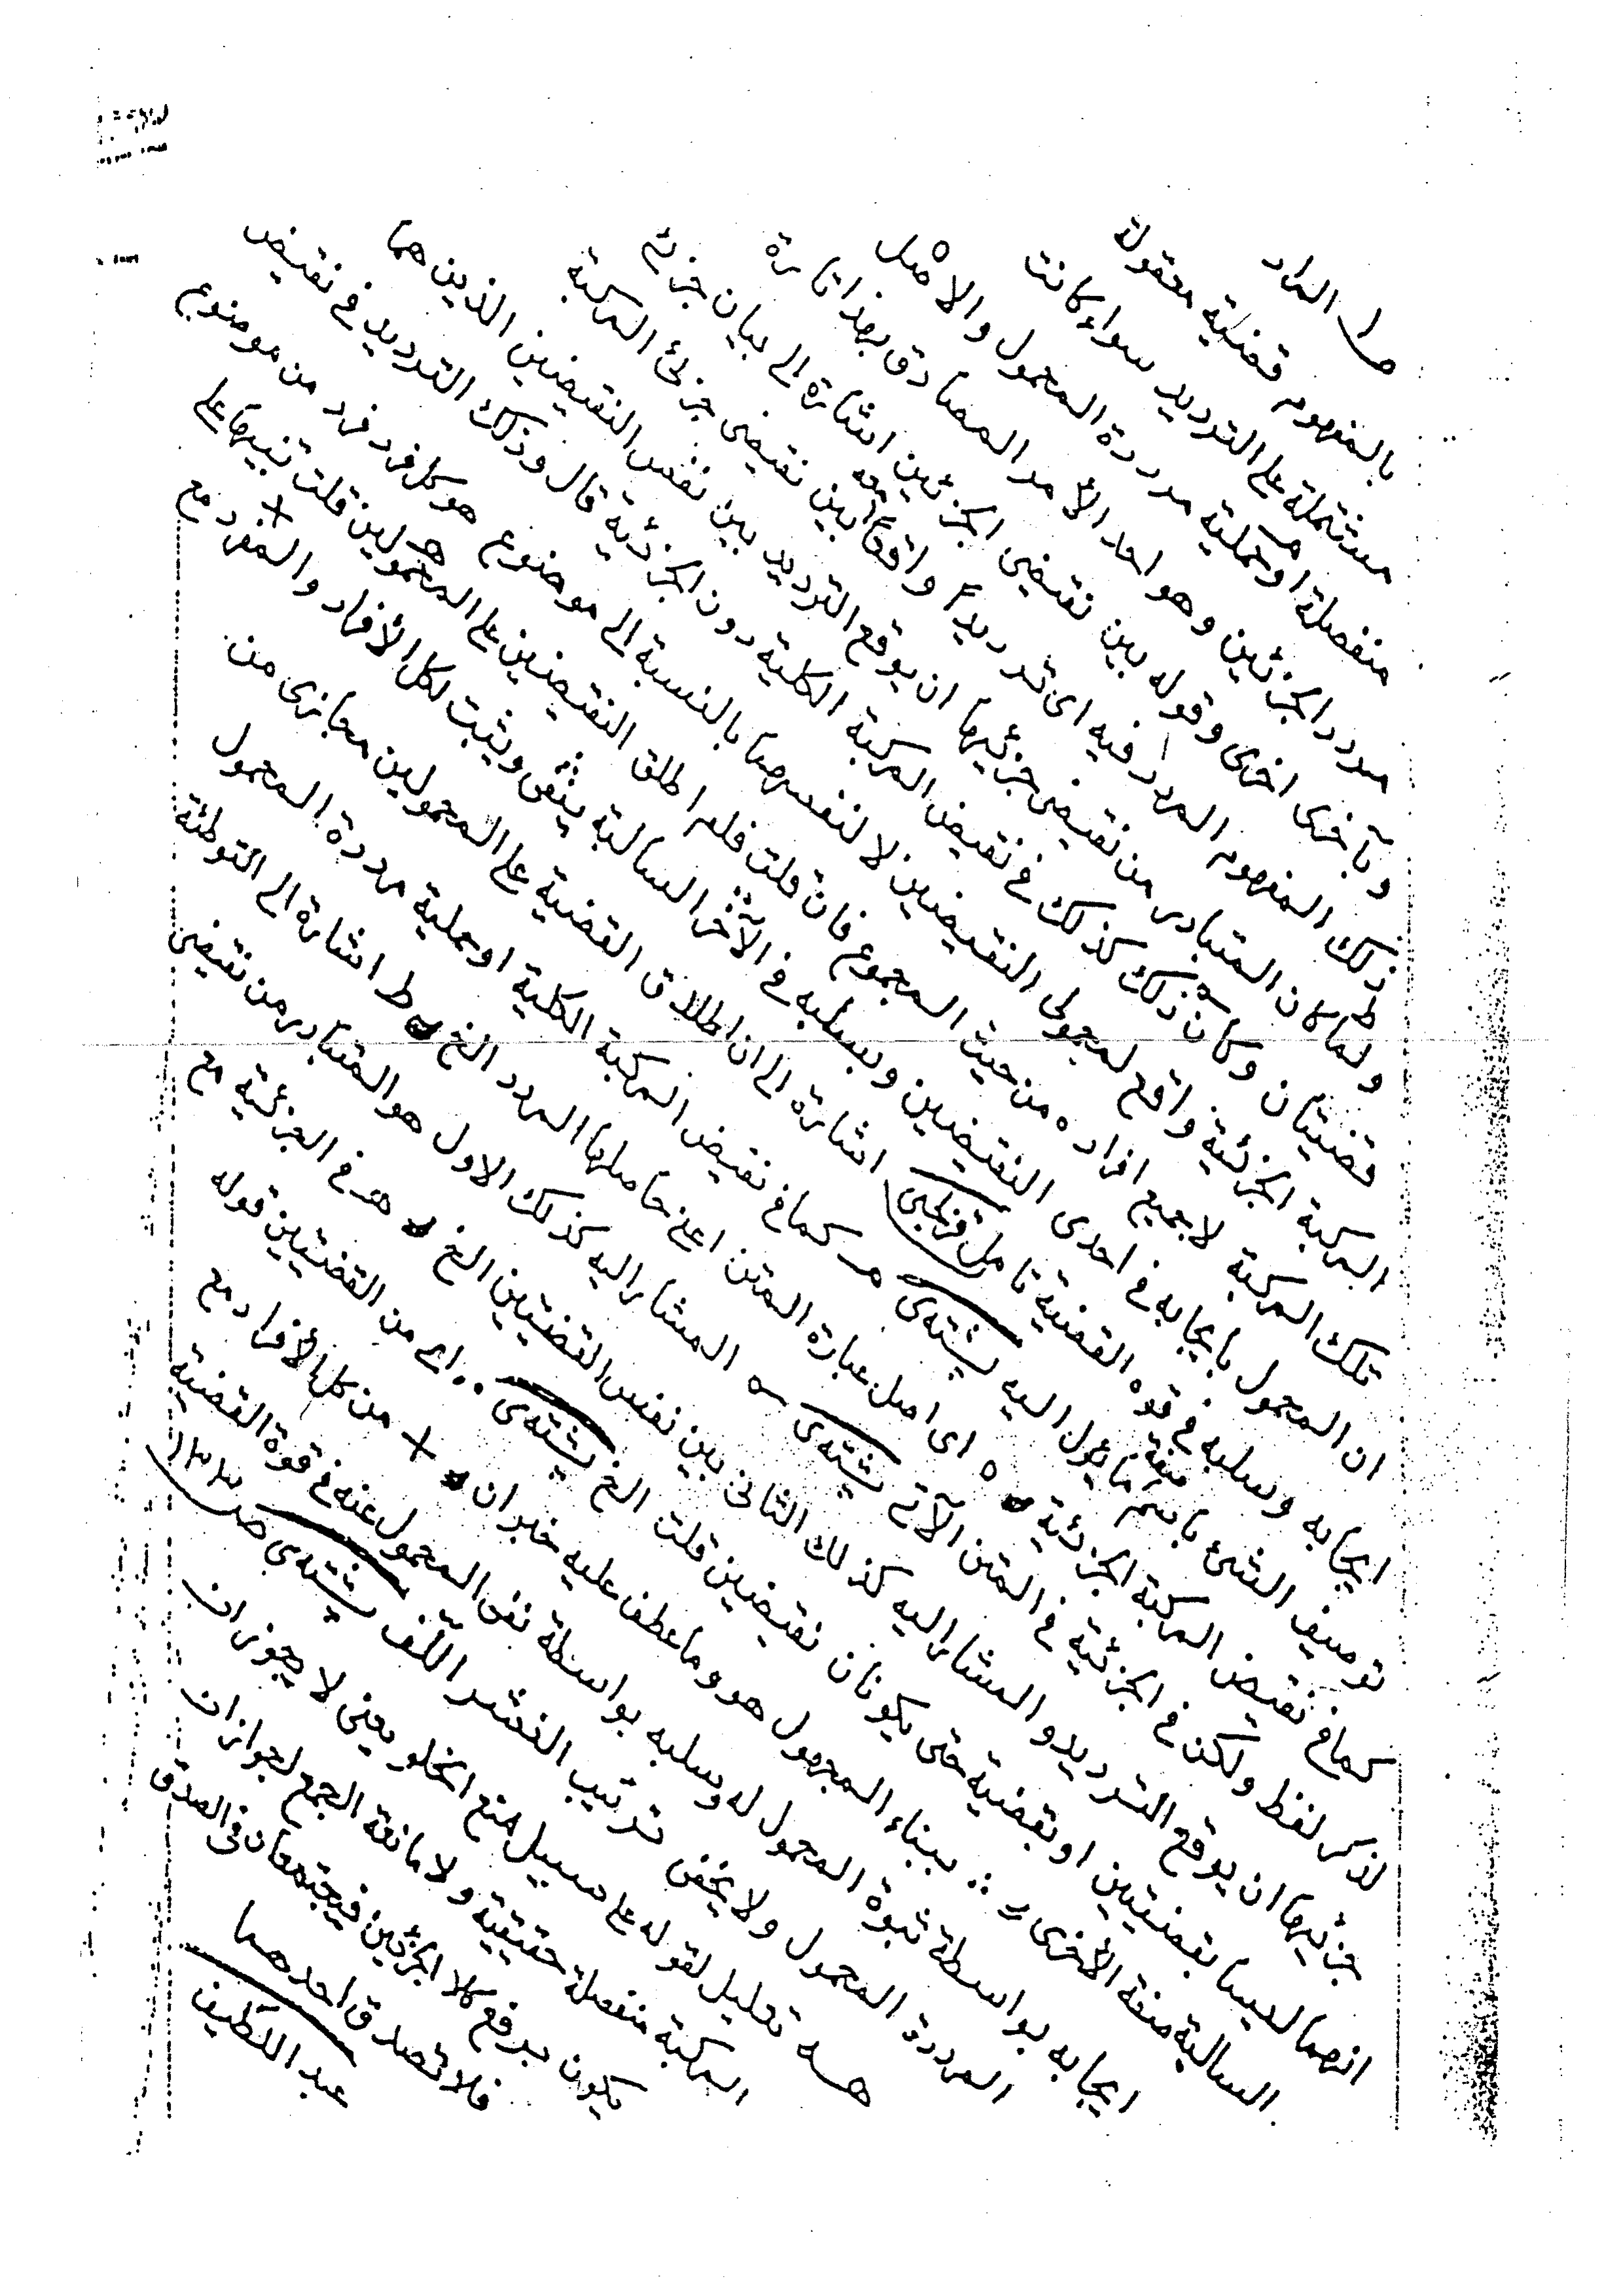 المراد
بالمفهوم قضية معقولة
مشتملة على الترديد سواء كانت
منفصلة او حملية مرددة المحمول والاصل
مردد الجزئين وهو احد الأمر الصادق بهذا تارة
وبآخرى اخرى وقوله بين نقيضى الجزئين اشارة الى بيان جزئى
ذلك المفهوم المردد فيه اى ترديدا واقعا بين نقيضى جزئى المركبة
ولما كان المتبادر من نقيضى جزئيها ان يوقع الترديد بين نفس النقيضين الذين هما
قضيتان وكان ذلك كذلك في نقيض المركبة الكلية دون الجزئية قال وذلك الترديد في نقيض
المركبة الجزئية واقع لمحمولى النقيضين لا لنفسهما بالنسبة الى موضوع هو كل فرد فرد من موضوع
تلك المركبة لا جميع افراده من حيث المجموع فان قلت فلم اطلق النقيضين على المحمولين قلت تنبيها على
ان المحمول بايجابه في احدى النقيضين وبسلبه في الآخر السالبة ينفى ويثبت لكل الأفراد والمفرد مع
ايجابه وسلبه في قوة القضية تامل قزلجى اشارة الى ان اطلاق القضية على المحمولين مجازى من
توصيف الشئ باسم ما يؤل اليه پشتدى كما في نقيض المركبة الكلية او حملية مرددة المحمول
كما في نقيض المركبة الجزئية ه اى اصل عبارة المتن اعنى المردد الخ ط اشارة الى التوطئة
لذكر لفظ ولكن في الجزئية في المتن الآتى پشتدى المشار اليه كذلك الاول هو المتبادر من نقيضى
جزئيها ان يوقع الترديد والمشار اليه كذلك الثانى بين نفس القضيتين الخ في الجزئية مع
انهما ليسا بقضيتين او بقضية حتى يكونان نقيضين قلت الخ پشتدى .. اى من القضيتين قوله
السالبة صفة الأخرى ببناء المجهول هو وما عطف عليه خبران × من كل الأفراد مع
ايجابه بواسطة ثبوة المحمول له وسلبه بواسطة نفى المحمول عنه في قوة القضية
المرددة المحمول ولا يخفى ترتيب النشر اللف پشتدى
تعليل لقوله على سبيل منع الخلو يعنى لا يجوز ان
المركبة منفصلة حقيقية ولا مانعة الجمع لجواز ان
يكون برفع كلا الجزئين فيجتمعان فى الصدق
فلا تصدق احدهما
عبد اللطيف